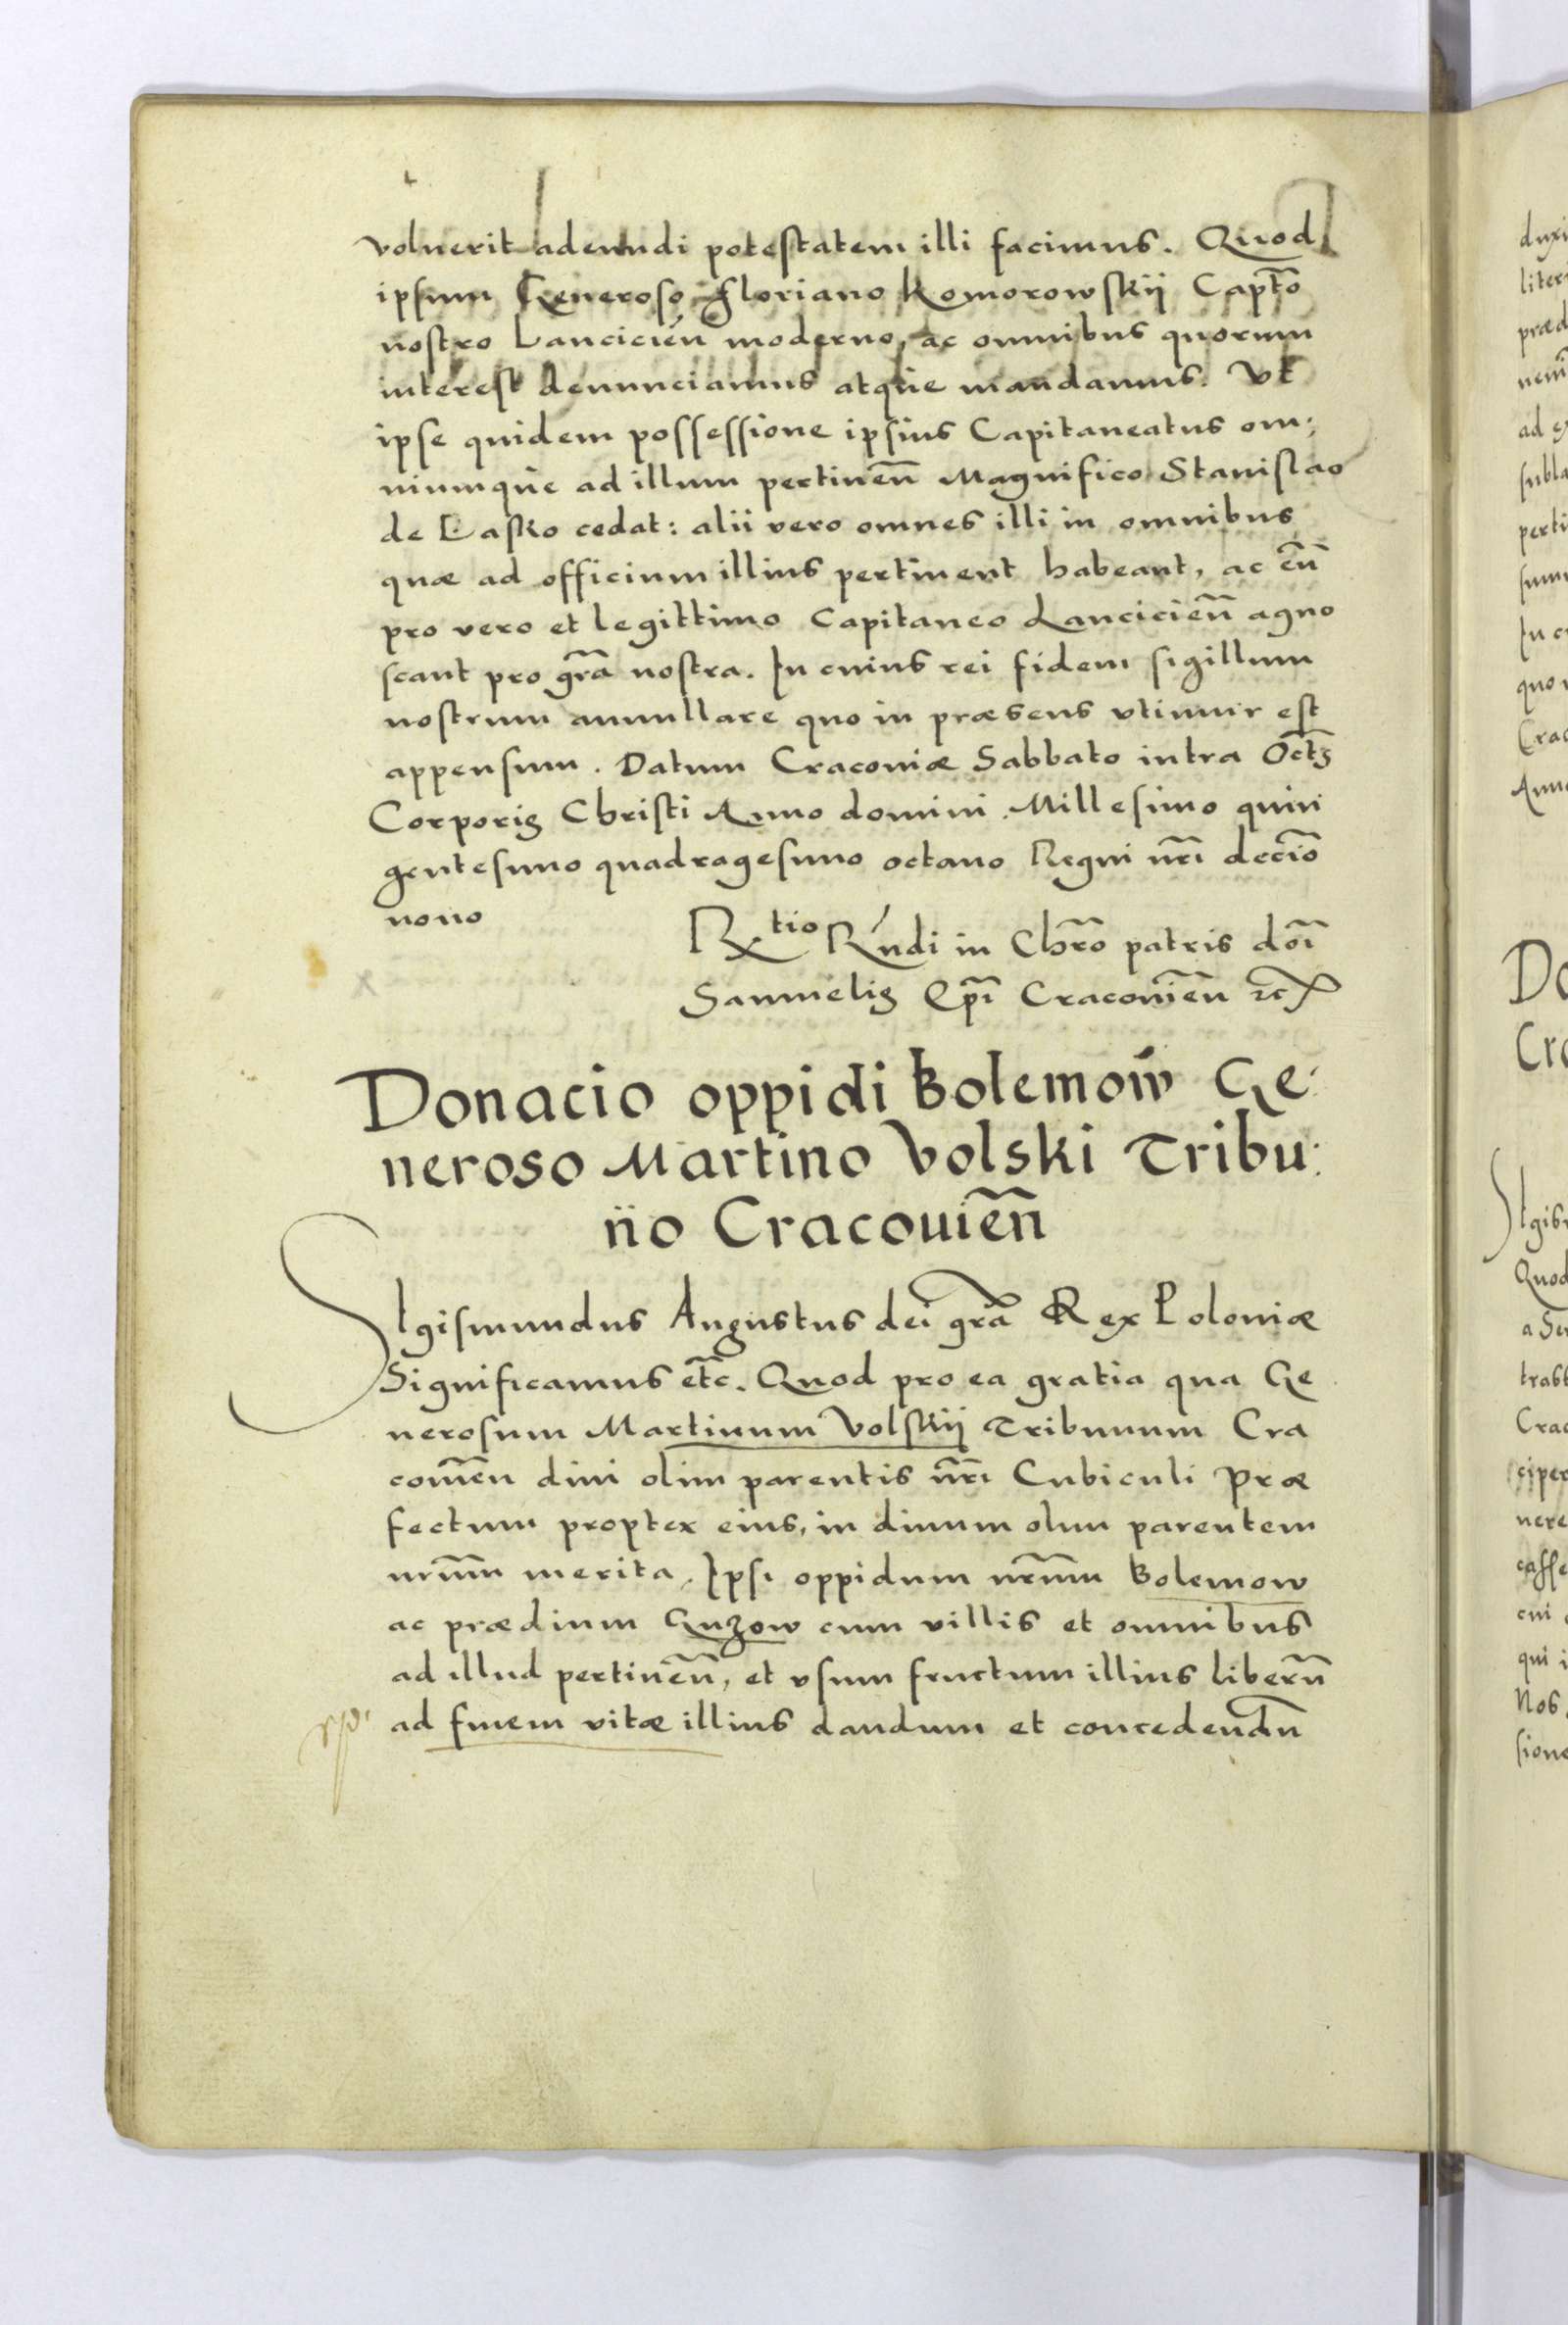 voluerit adeundi potestatem illi facimus. Quod
ipsum Generoso Floriano Komorowskij Capt̃o
nostro Lancicień moderno, ac omnibus quorum
interest denunciamus atque mandamus. Vt
ipse quidem possessione ipsius Capitaneatus om;
niumque ad illum pertineñ Magnifico Stanislao
de Lasko cedat: alii vero omnes illi in omnibus
quæ ad officium illius pertinent habeant, ac eũ
pro vero et legittimo Capitaneo Lancicieñ agno
scant pro gr̃a nostra. In cuius rei fidem sigillum
nostrum annullare quo in præsens vtimur est
appensum. Datum Cracouiæ Sabbato intra Oct̃ꝫ
Corporis Christi Anno domini Millesimo quin
gentesimo quadragesimo octauo Regni nr̃i decĩo
nono
Rtio Rńdi in Chr̃o patris dõi
Samuelis Ep̃i Cracouieñ ꝛc̃
Donacio oppidi Bolemow Ge:
neroso Martino Volski Tribu:
no Cracouieñ
SIgismundus Augustus dei gr̃a Rex Poloniæ
Significamus et̃c. Quod pro ea gratia qua Ge
nerosum Martinum Volskij Tribunum Cra
couieñ diui olim parentis nr̃i Cubiculi Præ
fectum propter eius, in diuum olim parentem
nr̃um merita, Ipsi oppidum nr̃um Bolemow
ac prædium Guzow cum villis et omnibus
ad illud pertineñ, et vsum fructum illius liber̃u
ad finem vitæ illius dandum et concedend̃u
duxi
liter
præd
nem̃
ad ex
subla
perti
sum
In c
quo
Crac
Anno
Do
Cra
SIgis
Quod
trabb
Crac
cipe
nere
casse
cui
qui i
Nos
sione